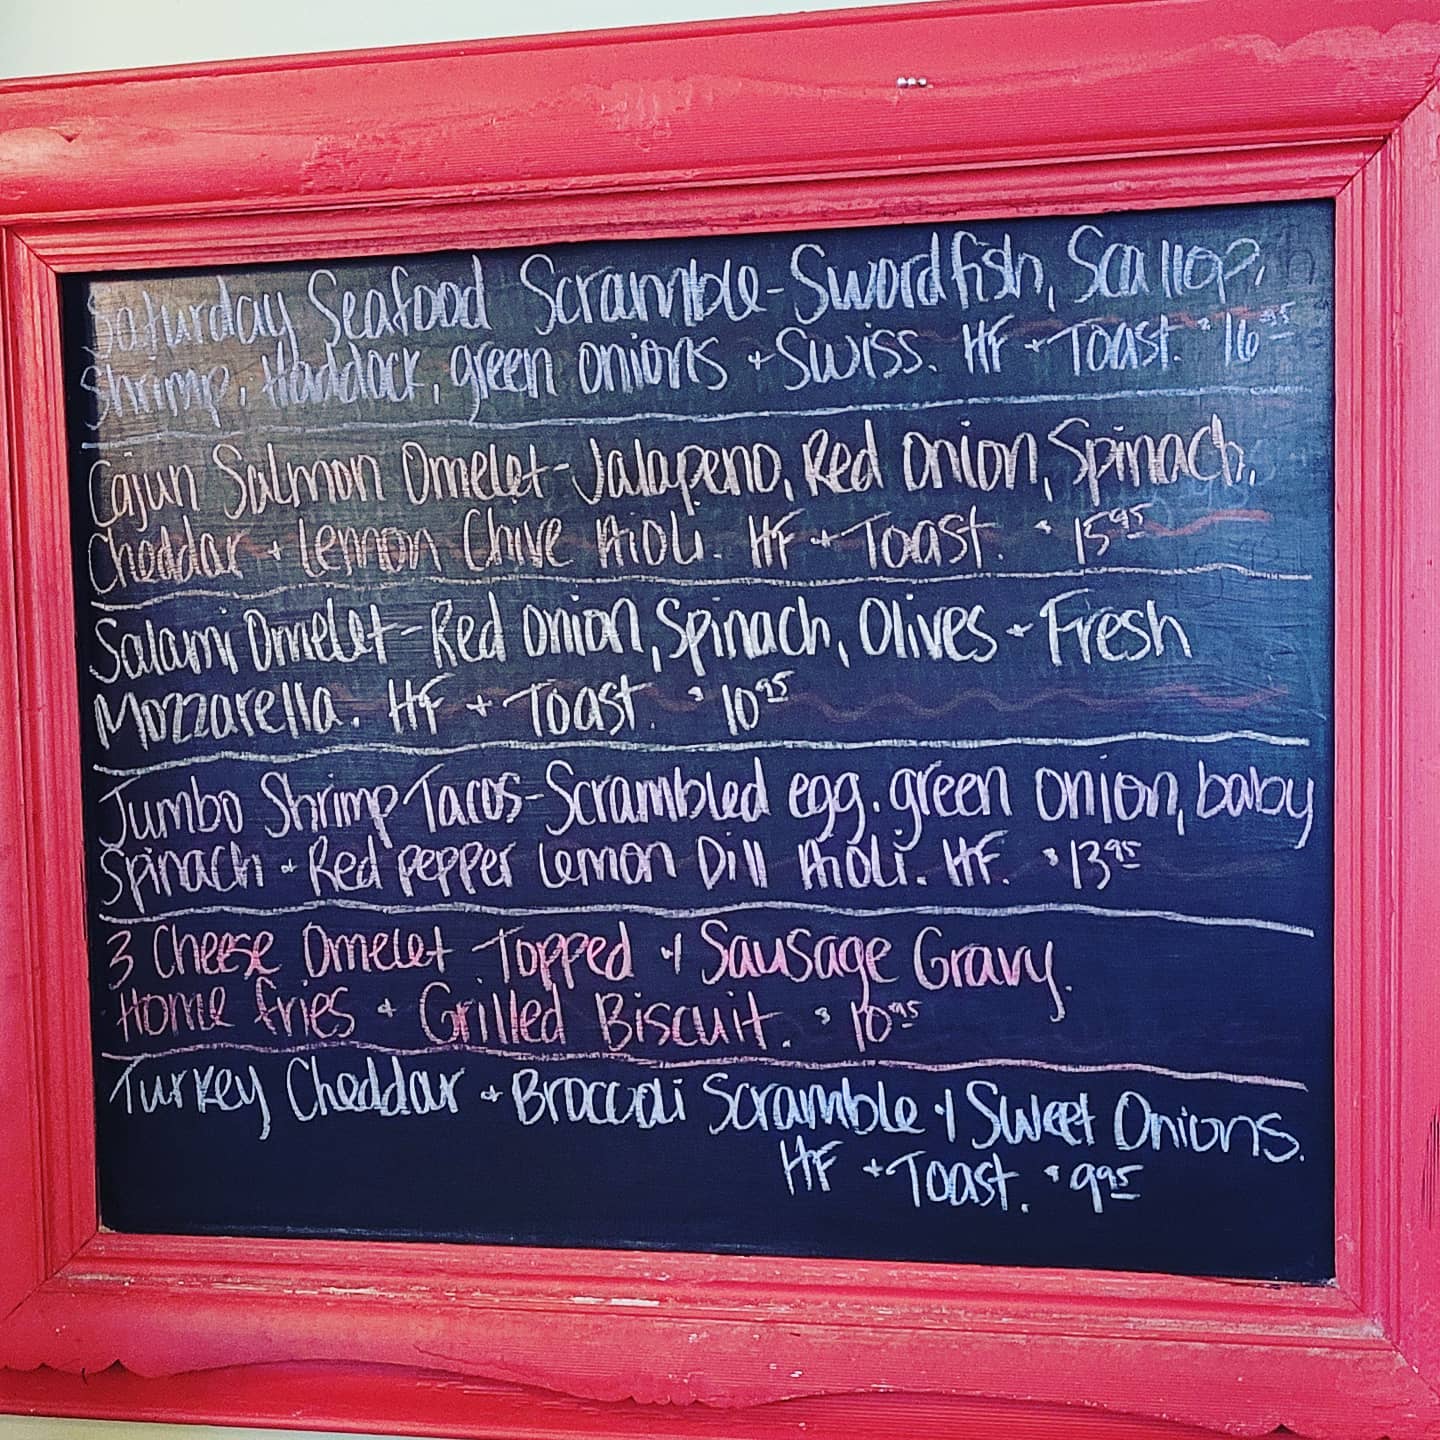 Saturday Seafood Scramble - Swordfish, Scallop,
Shrimp, Haddock, green onions + Swiss. HF + Toast. $16.95
Cajun Salmon Omelet - Jalapeno, Red Onion, Spinach,
Cheddar + Lemon Chive Aioli. HF + Toast. $15.95
Salami Omelet - Red Onion, Spinach, Olives + Fresh
Mozzarella. HF + Toast. $10.95
Jumbo Shrimp Tacos - Scrambled egg, green onion, baby
Spinach + Red pepper Lemon Dill Aioli. HF. $13.95
3 Cheese Omelet Topped w/ Sausage Gravy.
Home fries + Grilled Biscuit. $10.95
Turkey Cheddar + Broccoli Scramble w/ Sweet Onions.
HF + Toast. $9.95